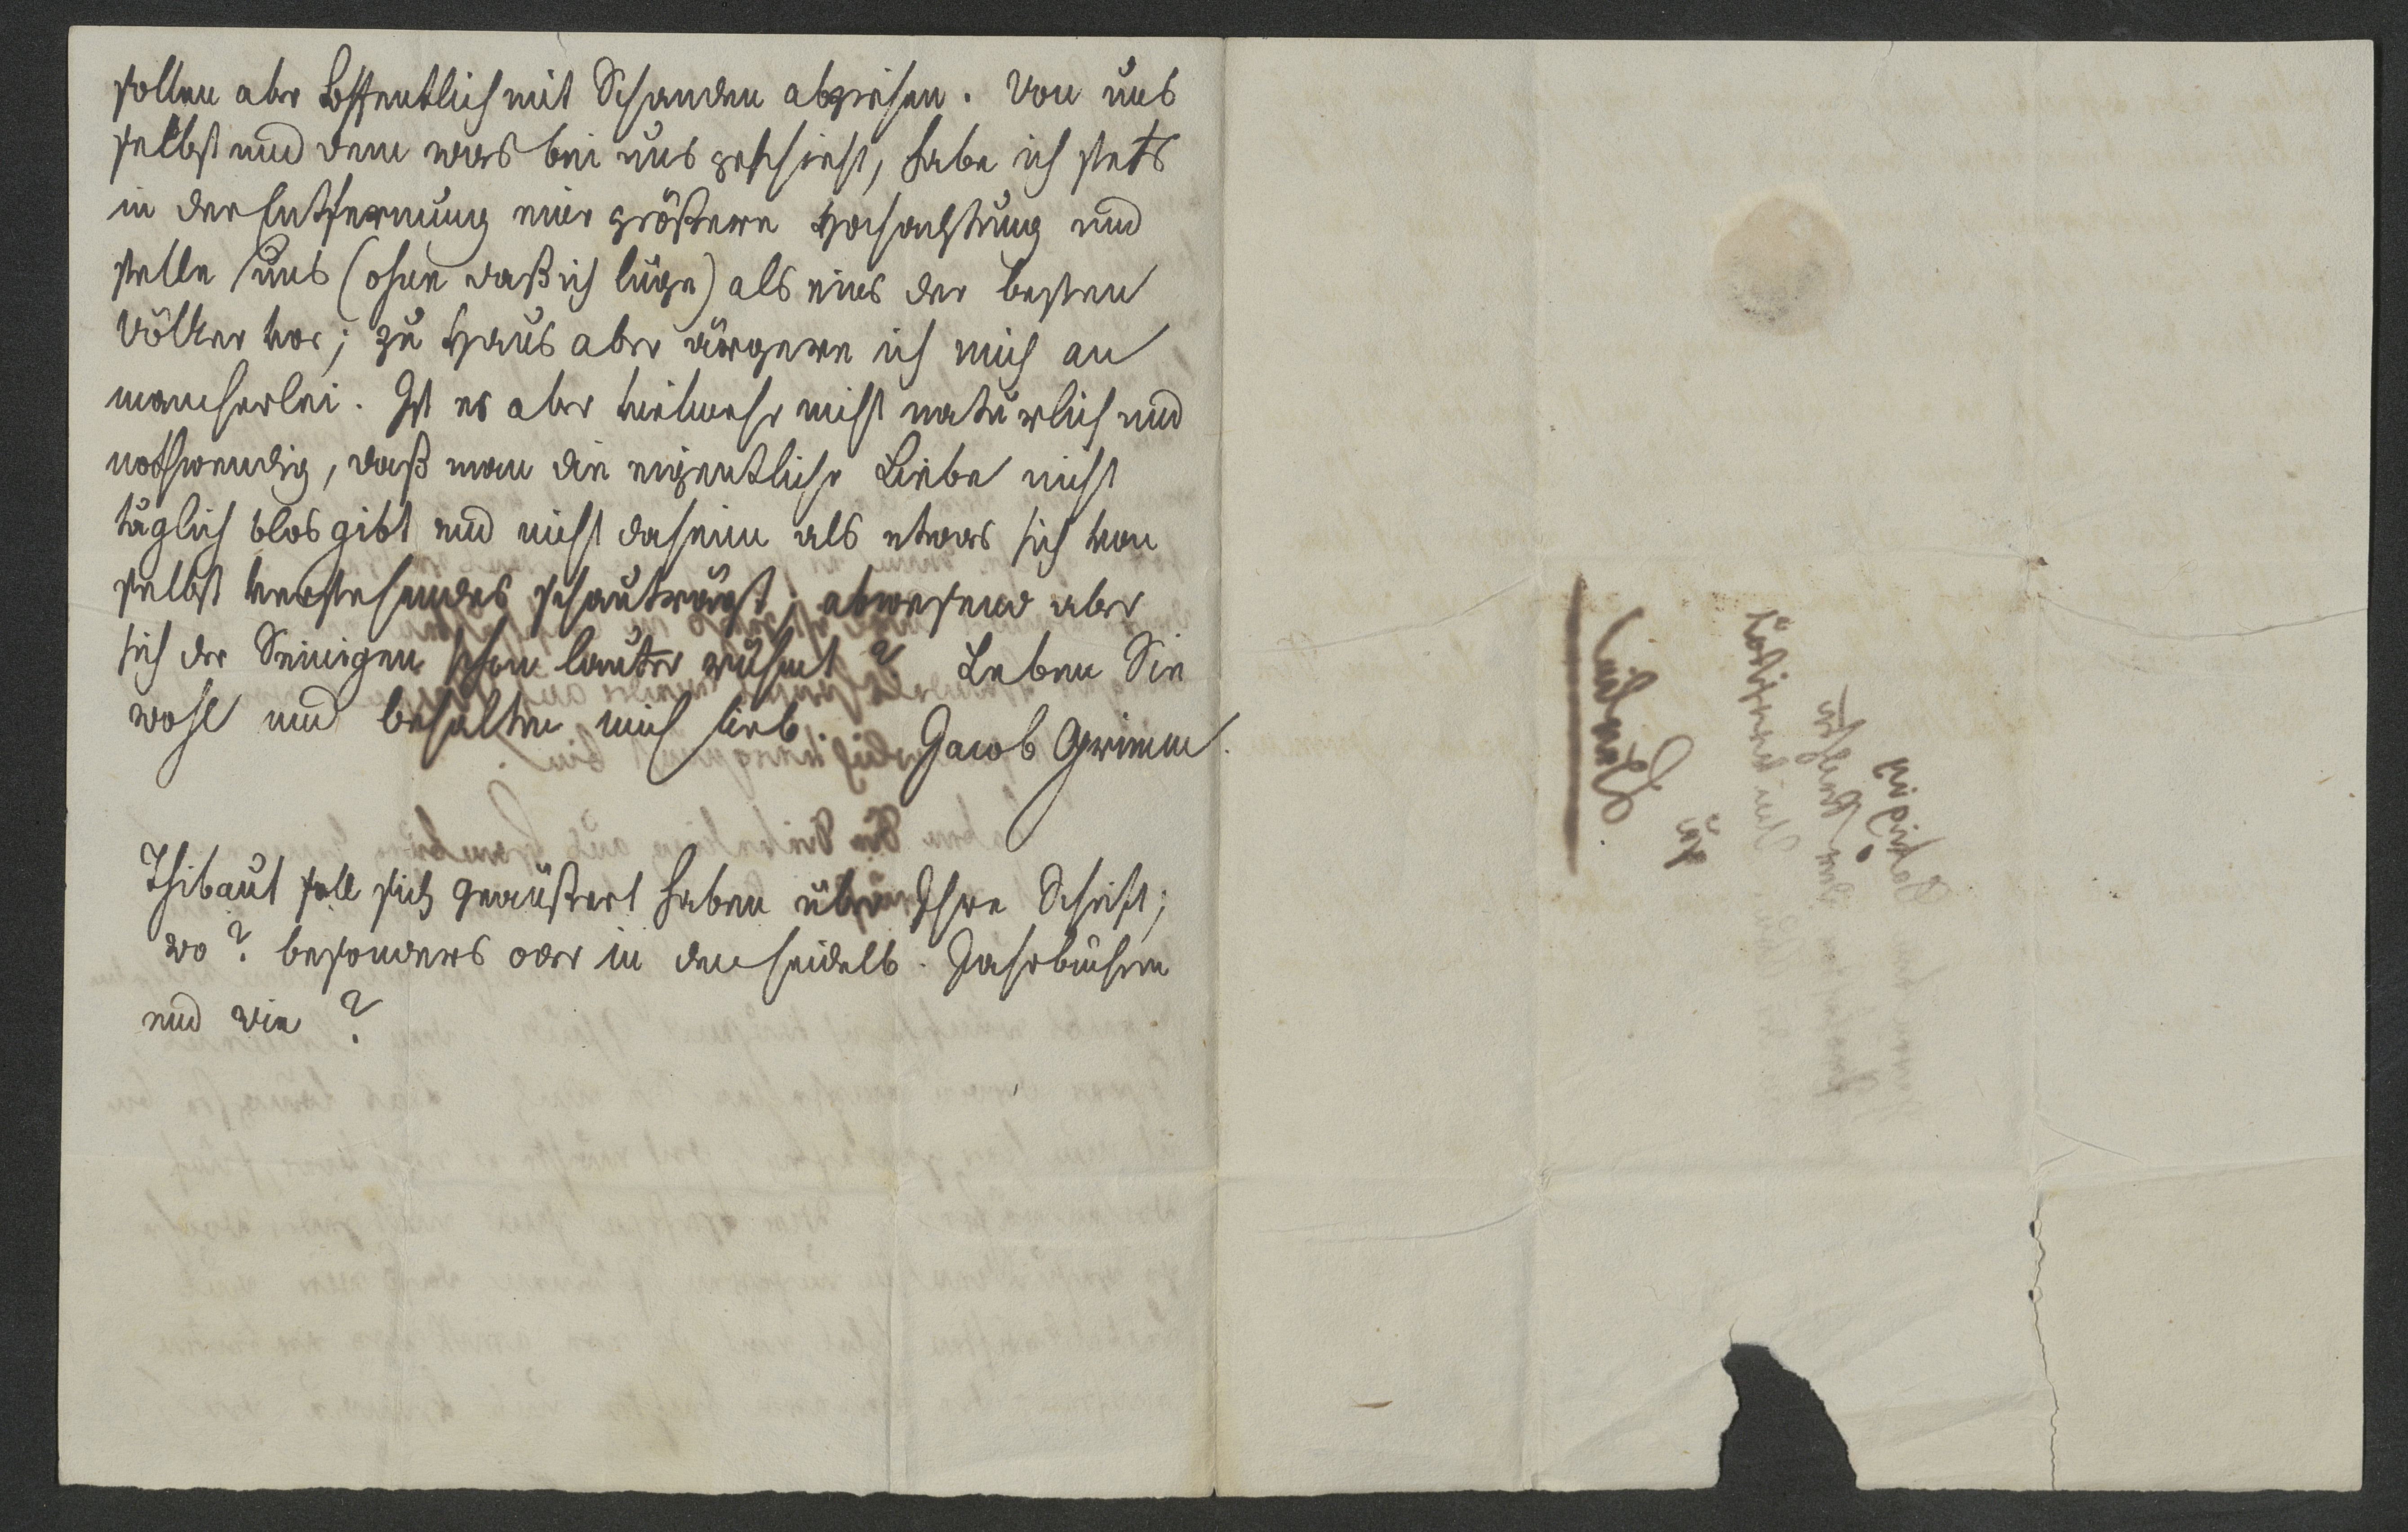 sollen aber hoffentlich mit Schanden abziehen. Von uns
selbst und dem was bei uns geschieht, habe ich stets
in der Entfernung eine größere Hochachtung und
stelle uns (ohne daß ich lüge) als eins der besten
Völker vor; zu Haus aber ärgere ich mich an
mancherlei. Ist es aber vielmehr nicht natürlich und
nothwendig, daß man die eigentliche Liebe nicht
täglich blos gibt und nicht daheim als etwas sich von
selbst verstehendes schauträgt; abwesend aber
sich der Seinigen schon lauter rühmt? Leben Sie
wohl und behalten mich lieb. Jacob Grimm.
Thibaut soll sich geäußert haben über Ihre Schrift;
wo? besonders oder in den heidelb. Jahrbüchern
und wie?